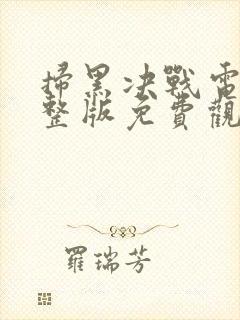 掃黑决戰電
整版免費觀
羅瑞芳